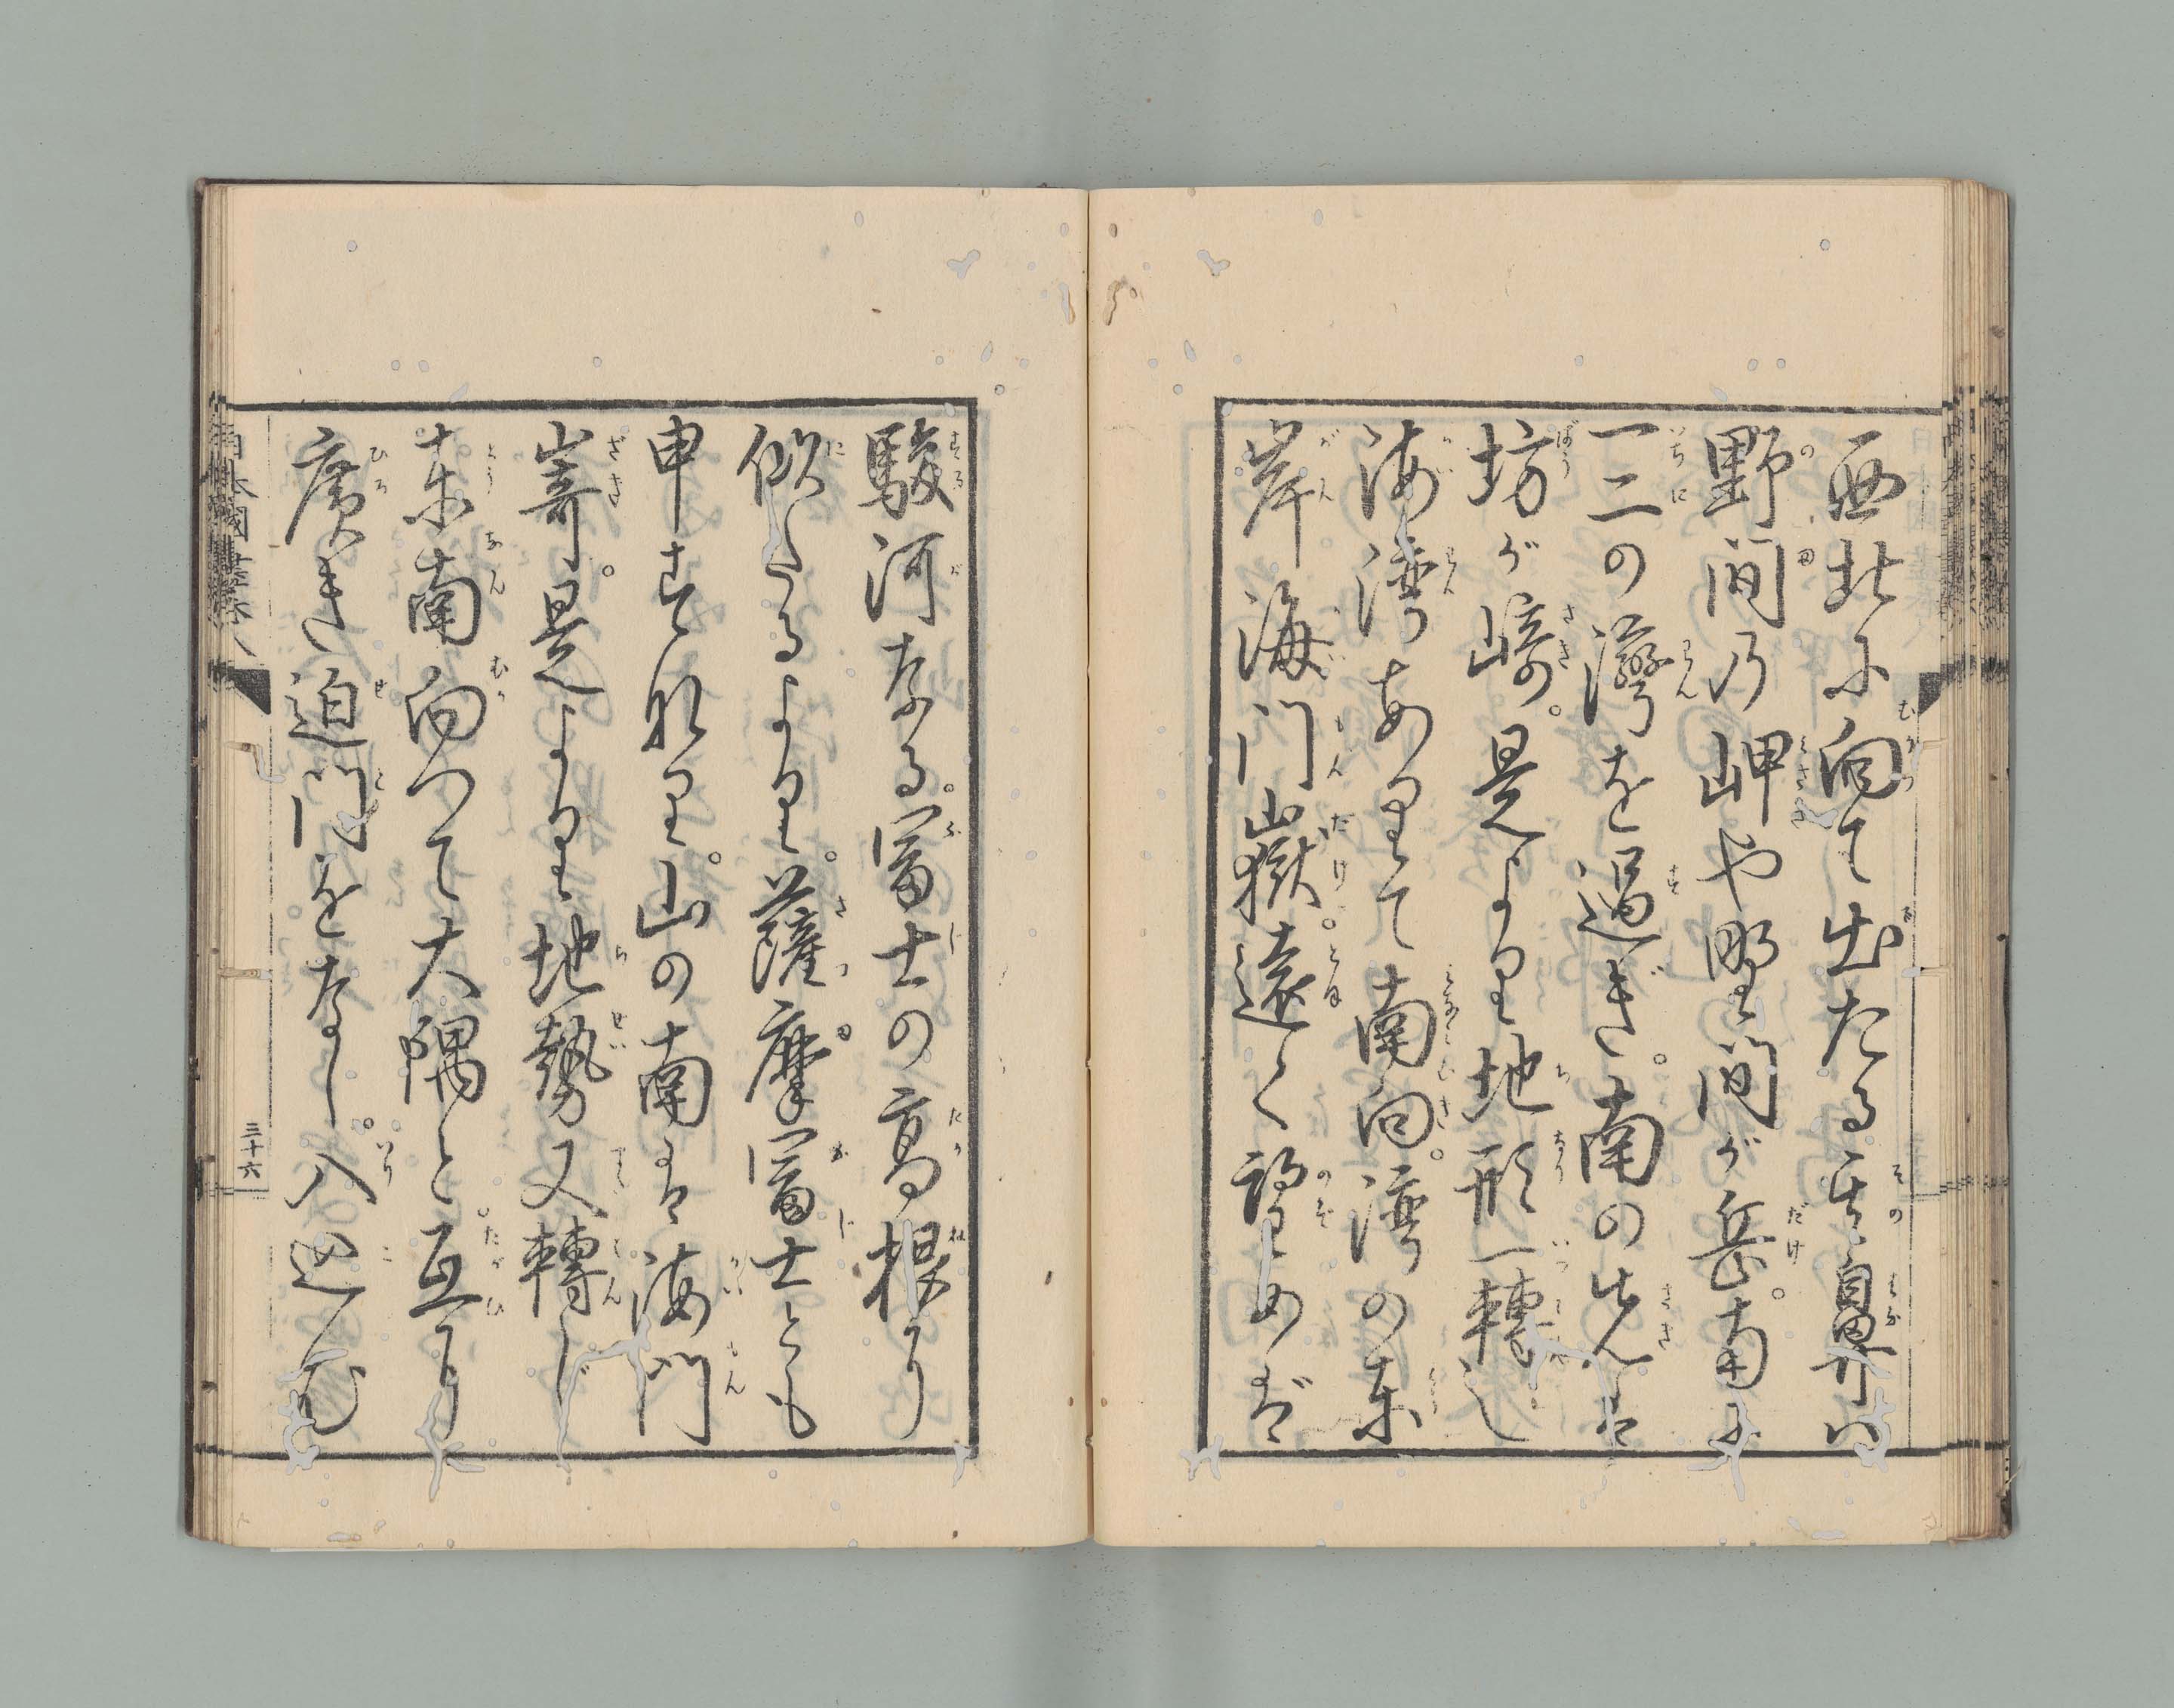 西北に向て出たる其鼻ハ
野間乃岬や野間が岳。南に
一二の灣を過ぎ。南の先は
坊が﨑。是より地形一轉し
海湾ありて南向。湾の東
岸海門嶽。遠く望めば
駿河なる。富士の髙根に
似たるより。薩摩富士とも
申すなり。山の南は海門
嵜。是より地勢又轉じ
東南向つて大隅と互に
廣き迫門をなし。入込む
三十六